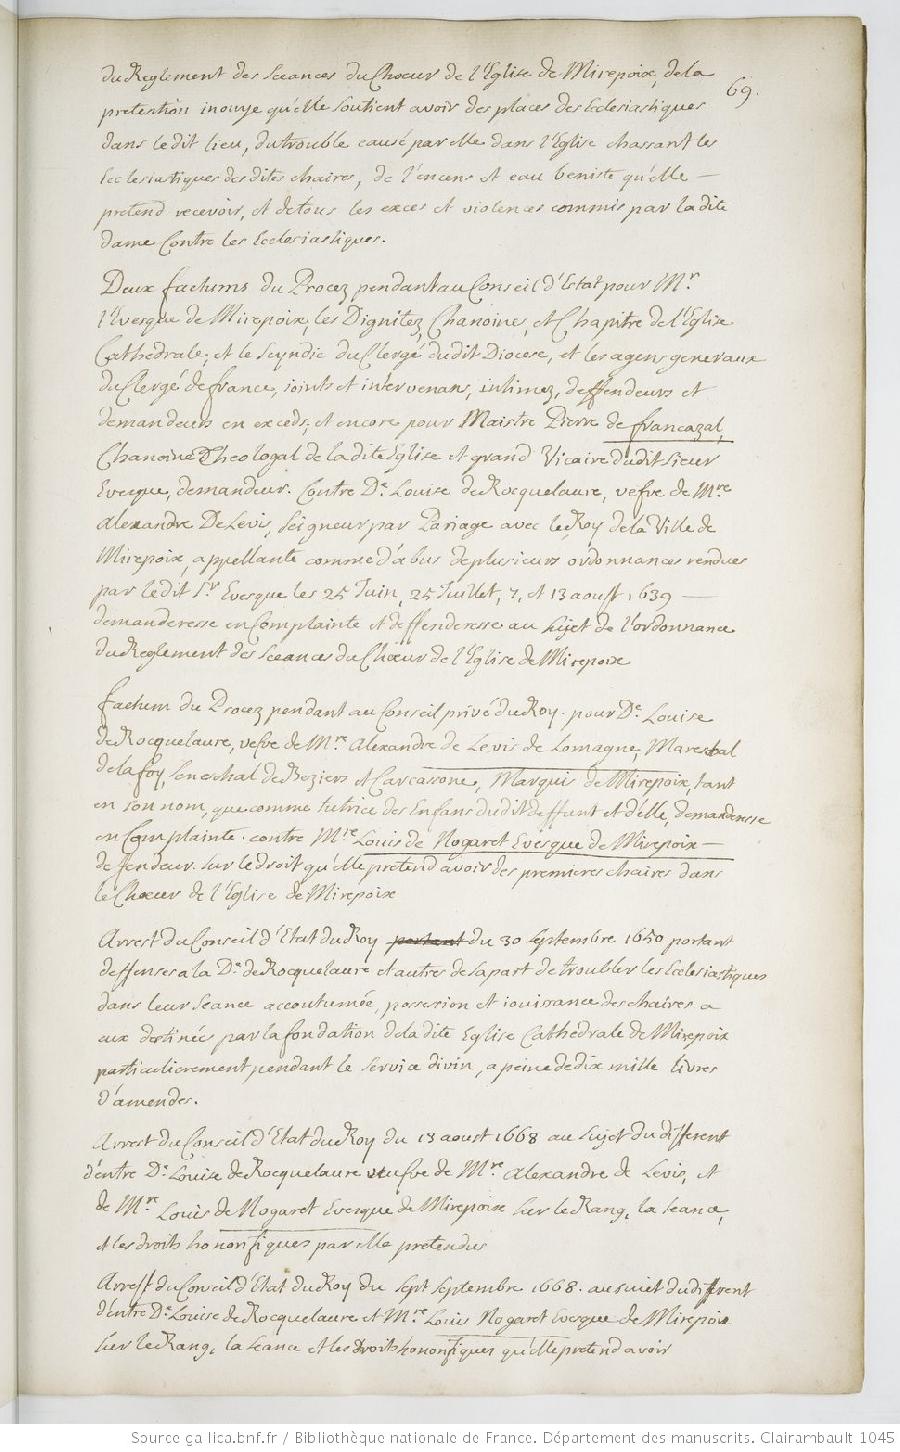 69.
du Reglement des seances du Choeur de l'Eglise de Mirepoix, de la
pretention inouye qu'elle soutient avoir des places des Eclesiastiques
dans ledit lieu, du trouble causé par elle dans l'Eglise chassant les
Ecclesiastiques desdites chaires, de l'encens et eau beniste qu'elle —
pretend recevoir, et de tous les exces et violences commis par ladite
dame Contre les Ecclesiastiques.
Deux factums du Procez pendant au Conseil d'Estat pour Mr.
l'Evesque de Mirepoix, les Dignitez, Chanoines, et Chapitre de l'Eglise
Cathedrale, et le Scyndic du Clergé dudit Diocese, et les agens generaux
du Clergé de france, joints et intervenans, intimez, deffendeurs et
demandeurs en excéds, et encore pour Maistre Pierre de francazal,
Chanoine Theologal de ladite Eglise et grand Vicaire dudit Sieur
Evesque, demandeur. Contre De. Louise de Rocquelaure, vefve de Mre
Alexandre De Levis, Seigneur par Pariage avec le Roy de la Ville de
Mirepoix, appellante comme d'abus de plusieurs ordonnances rendues
par ledit Sr. Evesque les 25 Juin, 25 Juillet, 7, et 13 aoust 1639 —
demanderesse en Complainte et deffenderesse au sujet de l'ordonnance
du Reglement des seances du Choeur de l'Eglise de Mirepoix
factum du Procez pendant au Conseil privé du Roy. pour De. Louise
de Rocquelaure, vefve de Mre. Alexandre de Levis de Lomagne, Mareschal
de la foy, Seneschal de Beziers et Carcassonne, Marquis de Mirepoix, tant
en son nom, que comme tutrice des Enfans dudit deffunt et d'elle, demanderesse
en Complainte. contre Mre. Louis de Nogaret Evesque de Mirepoix —
deffendeur. sur le droit qu'elle pretend avoir des premieres chaires dans
le Choeur de l'Eglise de Mirepoix
Arrest du Conseil d'Etat du Roy portant du 30 septembre 1650 portant
deffenses a la De. de Rocquelaure et autres de sa part de troubler les Eclesiastiques
dans leur seance accoutumée, possession et jouissance des chaires a
eux destinées par la fondation de la dite Eglise Cathedrale de Mirepoix
particulierement pendant le service divin, a peine de dix mille livres
d'amendes.
Arrest du Conseil d'Etat du Roy du 13 aoust 1668 au sujet du different
d'entre De. Louise de Rocquelaure veufve de Mre. Alexandre de Levis, et
de Mre. Louis de Nogaret Evesque de Mirepoix sur le Rang, la seance,
et les droits honorifiques par elle pretendus
Arrest du Conseil d'Etat du Roy du sept septembre 1668. au sujet du different
d'entre De. Louise de Rocquelaure et Mre. Louis Nogaret Evesque de Mirepoix
sur le Rang, la seance et les droits honorifiques qu'elle pretend avoir
Source gallica.bnf.fr / Bibliothèque nationale de France. Département des manuscrits. Clairambault 1045